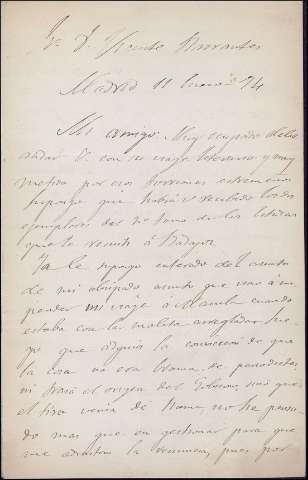 Sr. D. Vicente Barrantes
Madrid 11 Enero 74
Mi amigo: Muy ocupado debe
andar V. con su viaje literario y muy
metido por esos terrenos estremeños
supongo que habrá V. recibido los dos
ejemplares del 1er tomo de las
que le remití á Badajoz.
Ya le supongo enterado del asunto
de mi obispado asunto que vino á sus-
pender mi viaje á cuando
estaba con la maleta arreglada. Lue-
go que adquirí la conviccion de que
la cosa no era broma de periodistas,
ni traia el origen del sino que
el tiro venia de Roma, no he pensa-
do mas que en gestionar para que
me admitan la renuncia, pues por